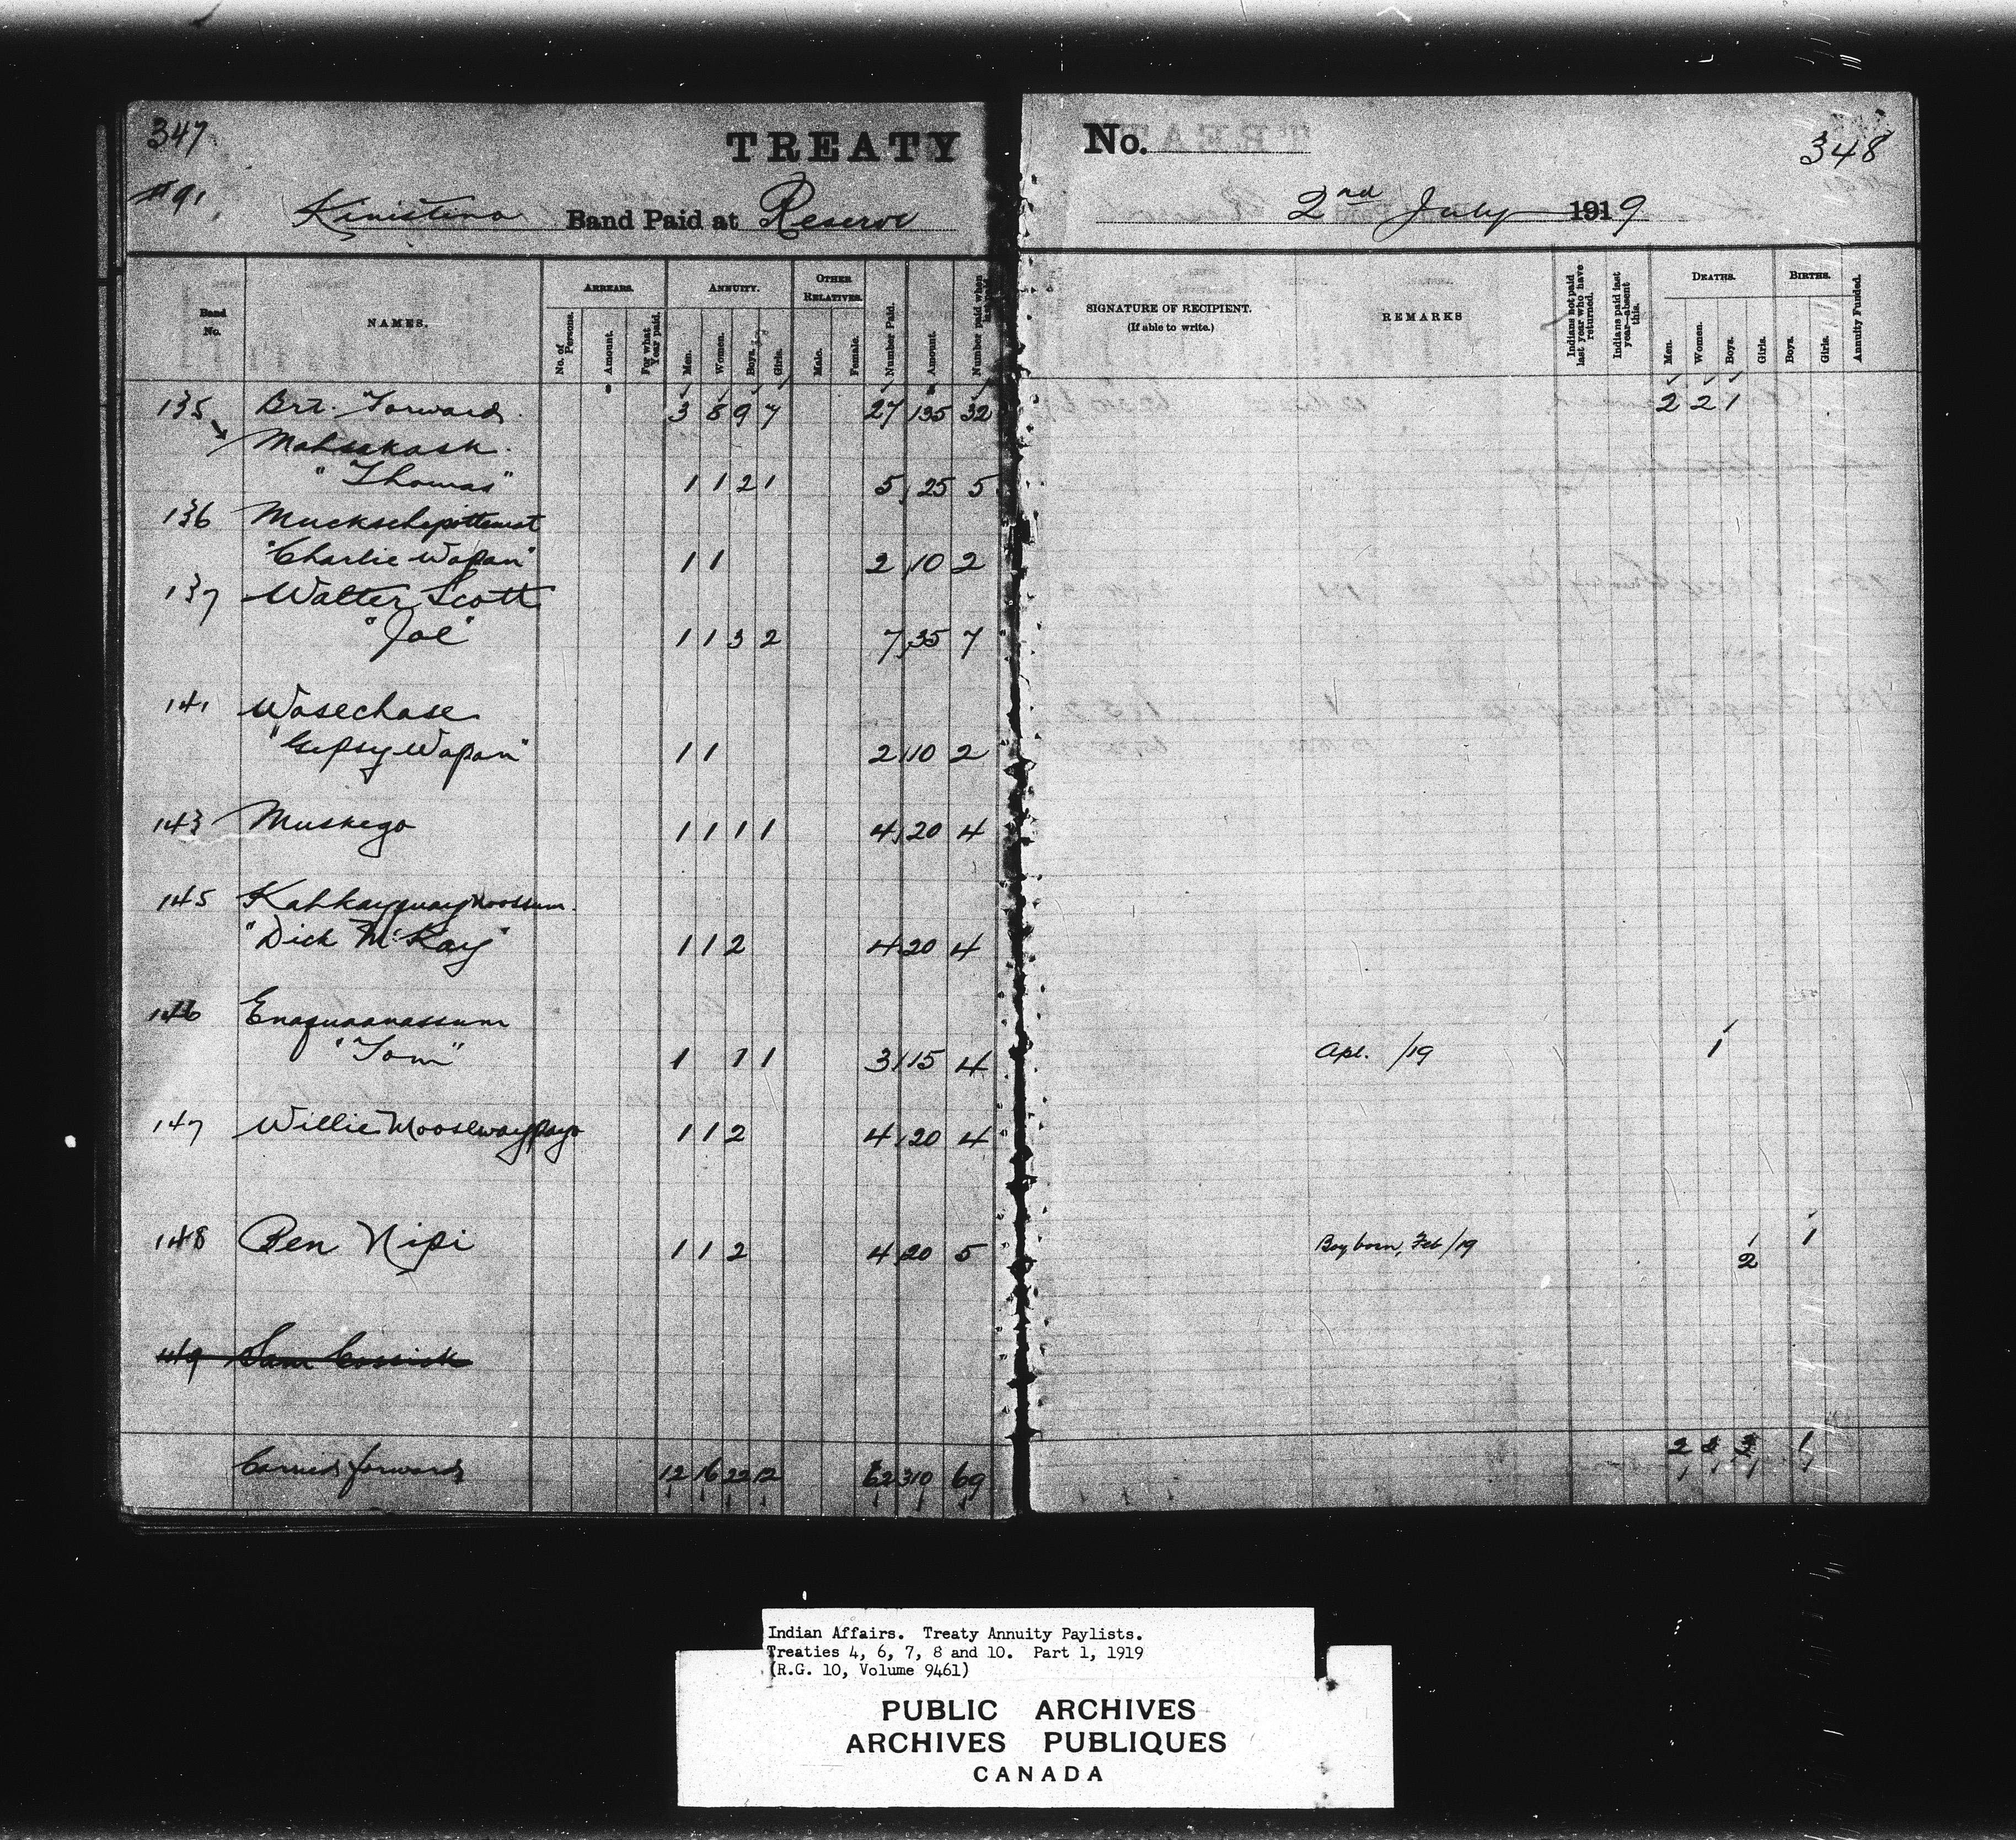 347
TREATY
No.
348
#91
Kinistino Band Paid at Reserve
2nd July 1919
Band No.
NAMES.
ARREARS.
No. of Persons.
Amount.
For what Year paid.
ANNUITY.
Men.
Women.
Boys.
Girls.
OTHER RELATIVES.
Male.
Female.
Number Paid.
Amount.
Number paid when last paid.
SIGNATURE OF RECIPIENT.
(If able to write.)
REMARKS
Indians not paid last year who have returned.
Indians paid last year—absent this.
DEATHS.
Men.
Women.
Boys.
Girls.
BIRTHS.
Boys.
Girls.
Annuity Funded.
Brt. Forward 3 8 9 7 27 135 32 2 2 1
135 Mahsakask
"Thomas" 1 1 2 1 5 25 5
136
"Charlie Wapan" 1 1 2 10 2
137 Walter Scott
"Joe" 1 1 3 2 7 35 7
141 Wasechase
"Gipsy Wapan" 1 1 2 10 2
143 Muskego 1 1 1 1 4 20 4
145 Kahkayquaynoossum
"Dick McKay" 1 1 2 4 20 4
146 Enaquaanassum
"Tom" 1 1 1 3 15 4 Apl. /19 1
147 Willie Moosewaypayo 1 1 2 4 20 4
148 Ben Nipi 1 1 2 4 20 5 Boy born, Feb/19 2 1
149 Sam
Carried forward 12 16 22 12 62 310 69 2 3 1
Indian Affairs. Treaty Annuity Paylists.
Treaties 4, 6, 7, 8 and 10. Part 1, 1919
(R.G. 10, Volume 9461)
PUBLIC ARCHIVES
ARCHIVES PUBLIQUES
CANADA